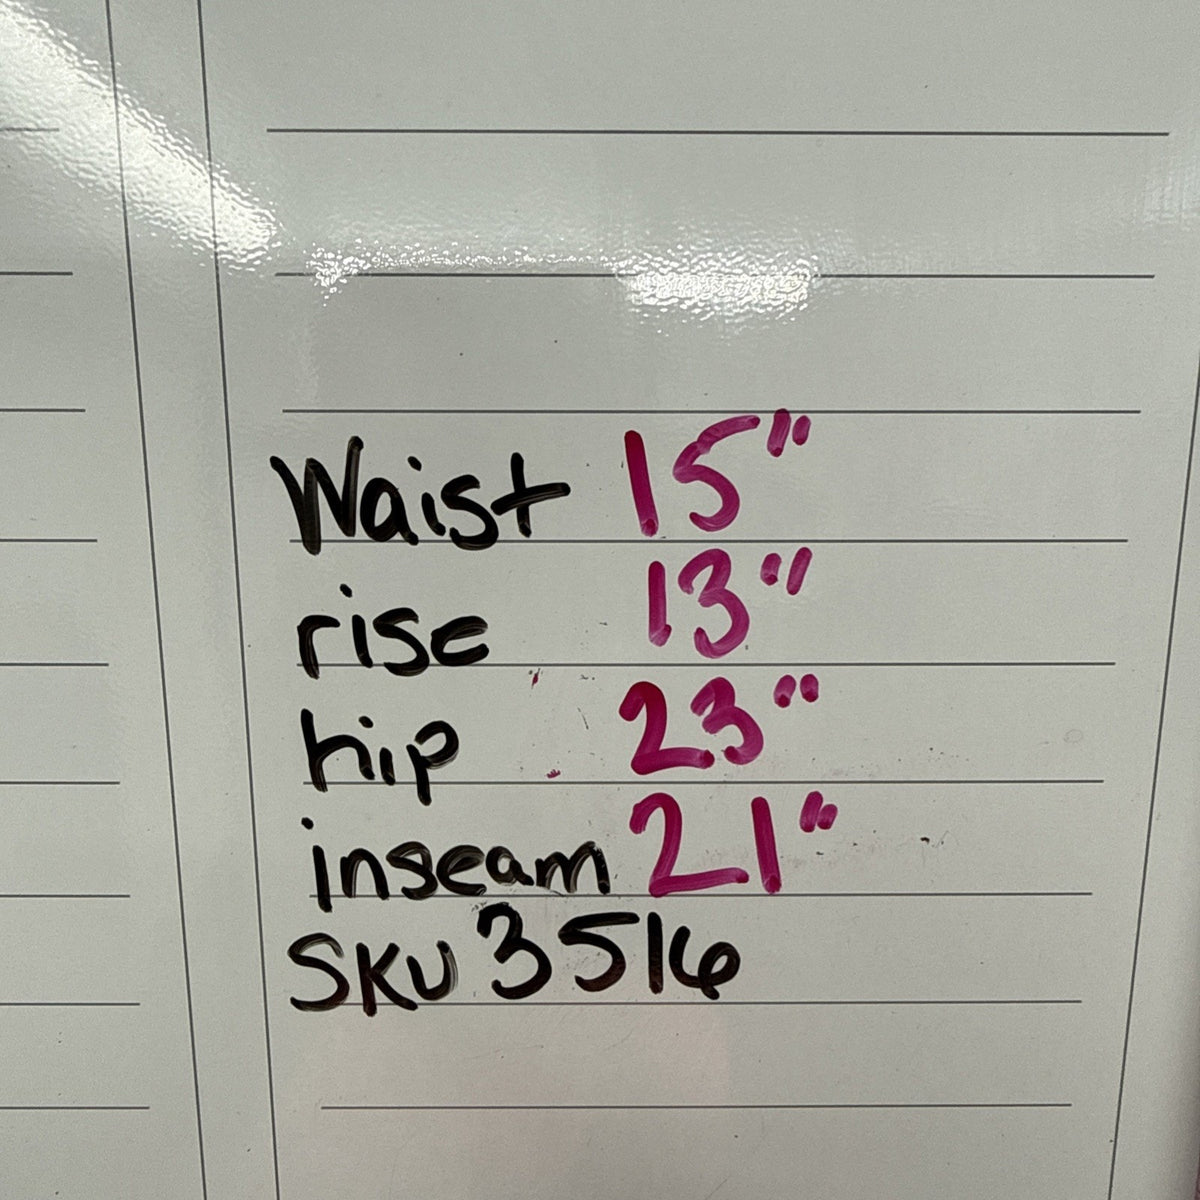 Waist 15"
rise 13"
hip 23"
inseam 21"
SKU 3516